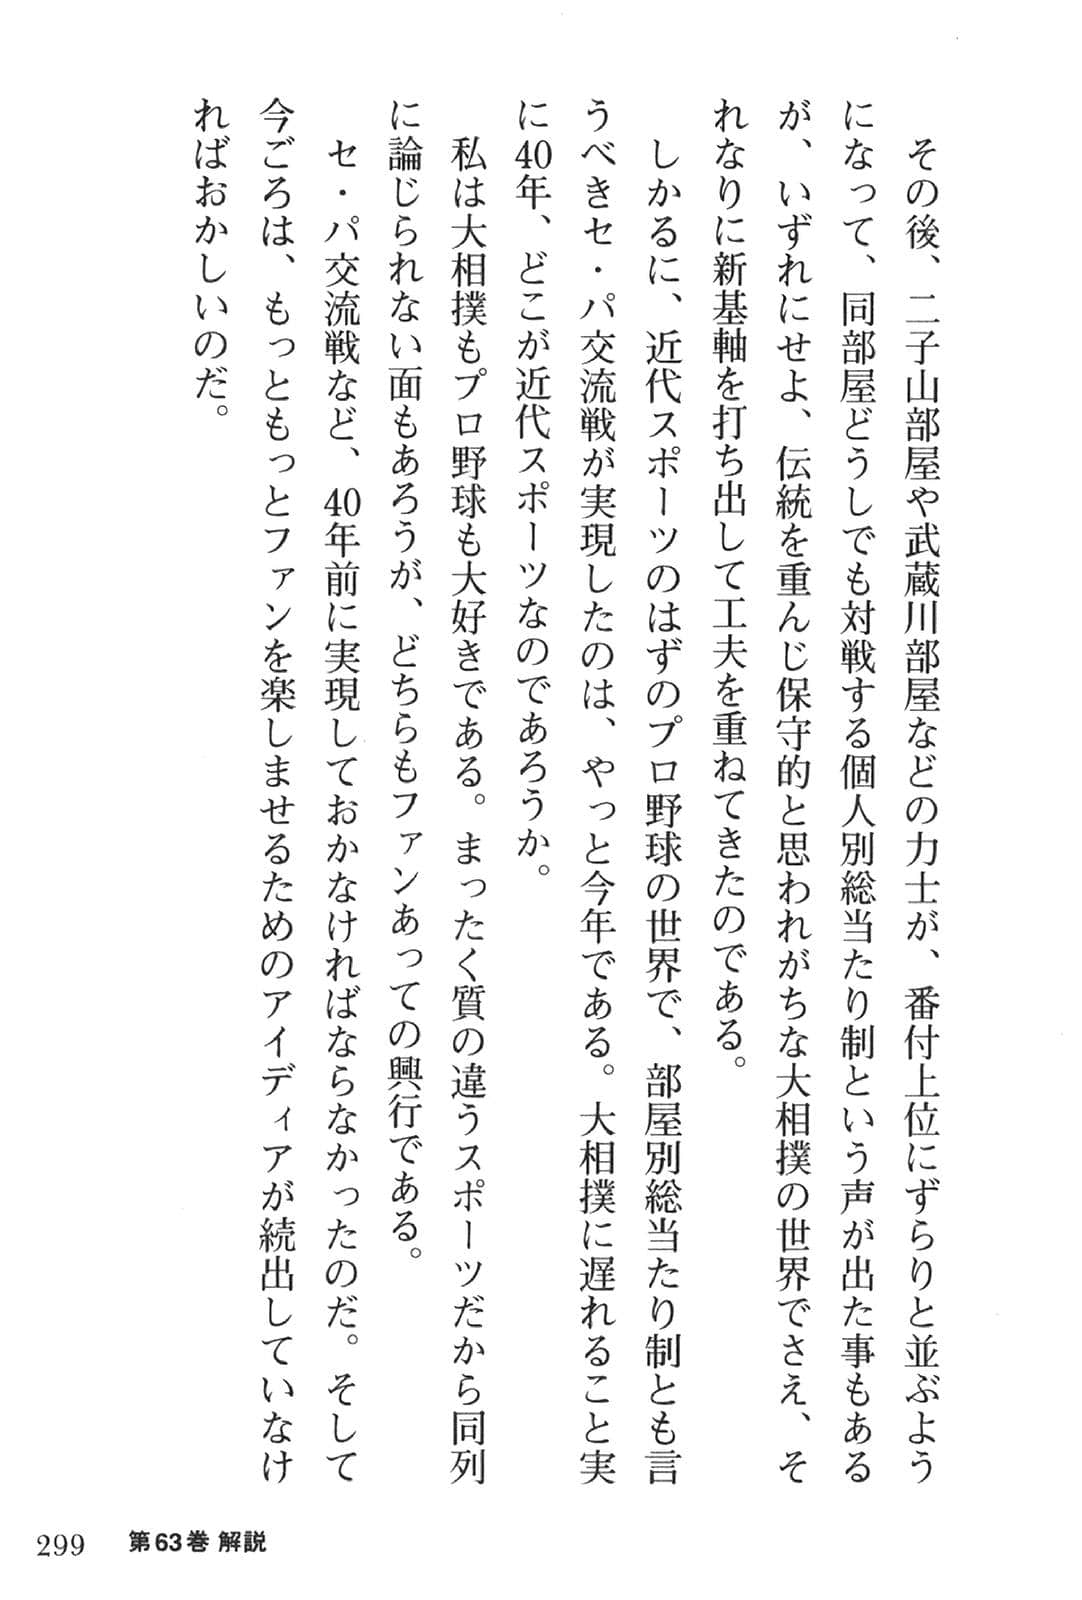 その後、二子山部屋や武蔵川部屋などの力士が、番付上位にずらりと並ぶよう
になって、同部屋どうしでも対戦する個人別総当たり制という声が出た事もある
が、いずれにせよ、伝統を重んじ保守的と思われがちな大相撲の世界でさえ、そ
れなりに新基軸を打ち出して工夫を重ねてきたのである。
しかるに、近代スポーツのはずのプロ野球の世界で、部屋別総当たり制とも言
うべきセ・パ交流戦が実現したのは、やっと今年である。大相撲に遅れること実
に40年、どこが近代スポーツなのであろうか。
私は大相撲もプロ野球も大好きである。まったく質の違うスポーツだから同列
に論じられない面もあろうが、どちらもファンあっての興行である。
セ・パ交流戦など、40年前に実現しておかなければならなかったのだ。そして
今ごろは、もっともっとファンを楽しませるためのアイディアが続出していなけ
ればおかしいのだ。
299 第63巻 解説